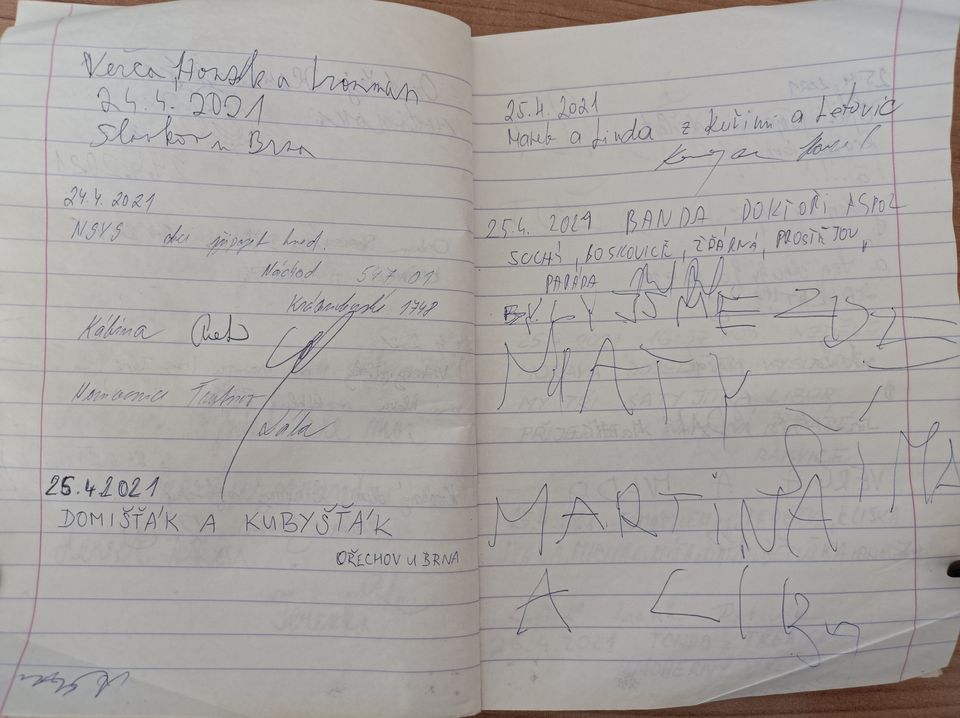 Verča, Honzík a Ironmán
24.4. 2021
Slavkov u Brna
24.4. 2021
NSYS chci připojit hned.
Náchod 547 01
1748
Kábina
Nemocnice Trutnov
Lála
25.4.2021
DOMIŠŤÁK A KUBYŠŤÁK
OŘECHOV U BRNA
25.4.2021
Marek a Linda z Kuřimi a Letovic
25.4. 2021 BANDA DOKTOŘI ASPOL
SUCHÝ, BOSKOVICE, ŽĎÁRNÁ, PROSTĚJOV,
PARÁDA
BYLY JSME ZDE
MATY
ŠÍMA
MARTINA
A LIBN